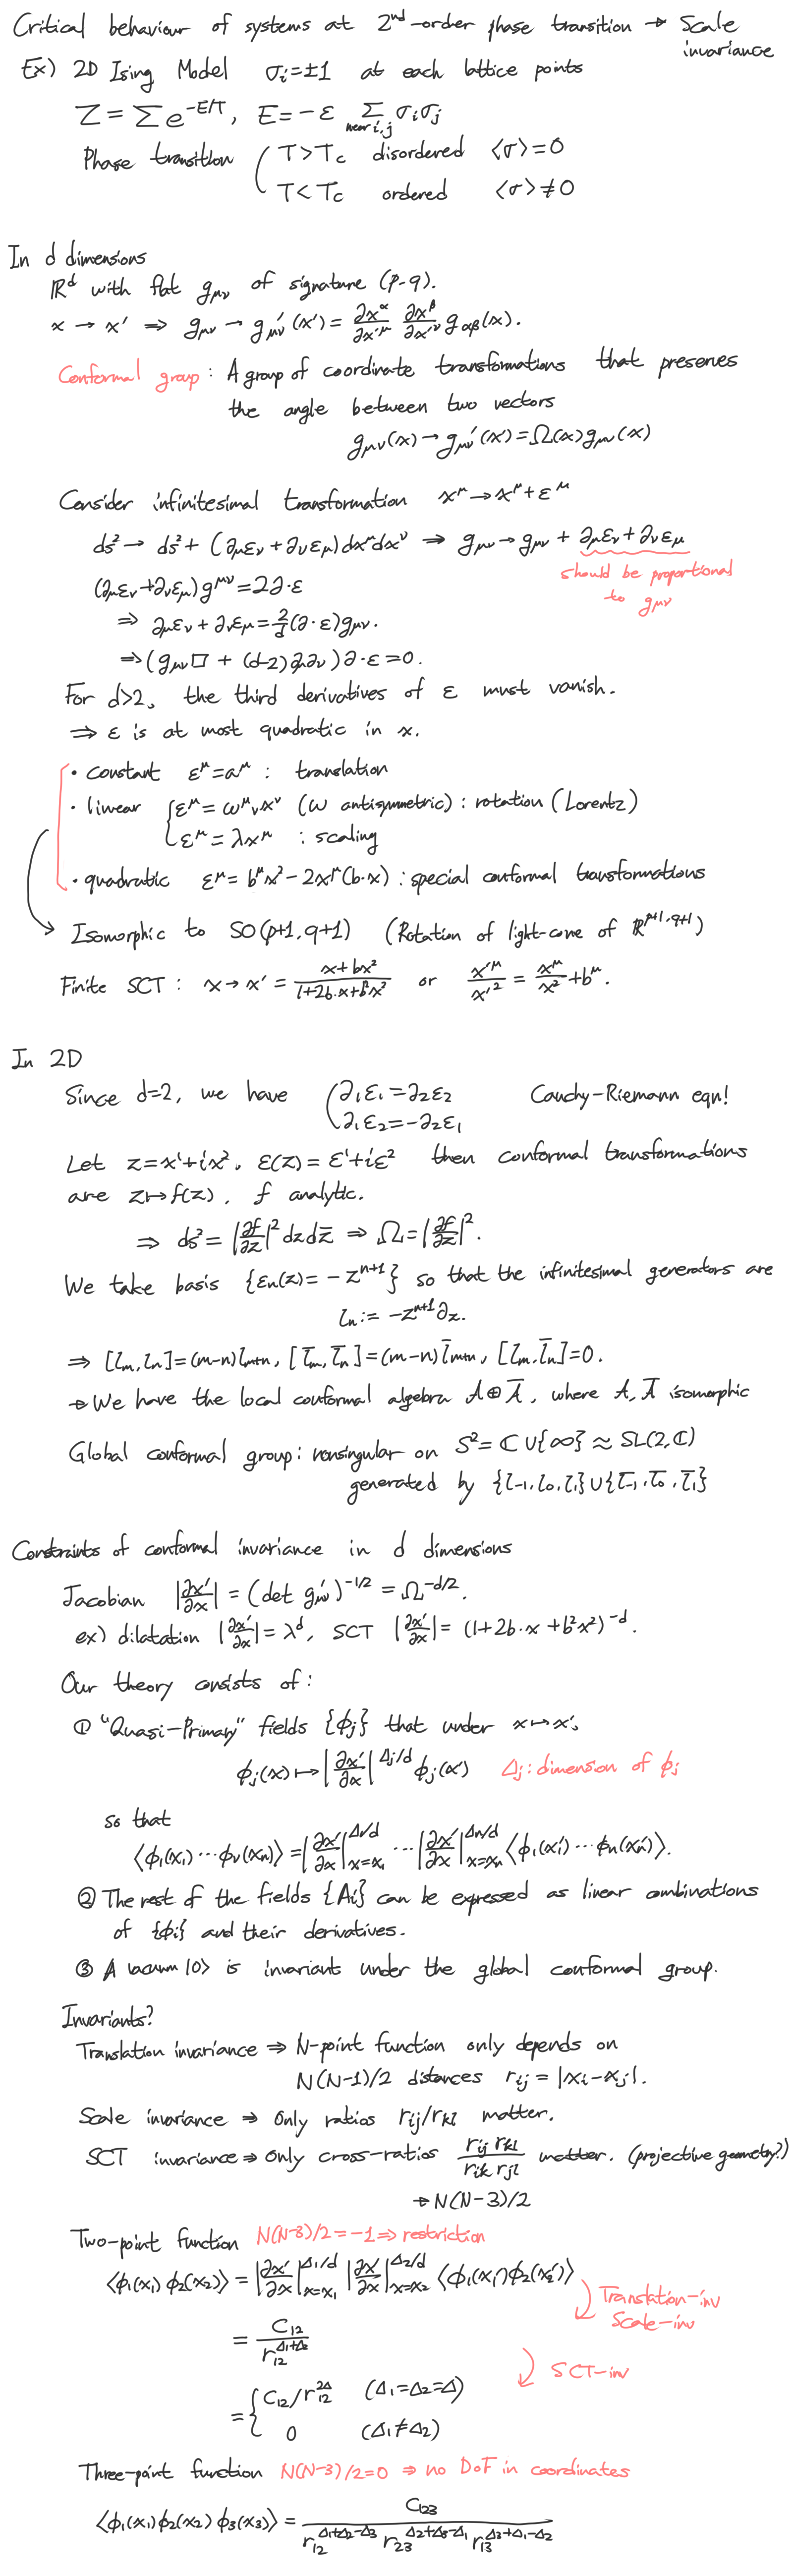 Critical behaviour of systems at 2nd-order phase transition → Scale invariance
Ex) 2D Ising Model σi=±1 at each lattice points
Z = Σ e^{-E/T}, E = -ε Σ_{near i,j} σiσj
Phase transition ( T>Tc disordered <σ>=0
T<Tc ordered <σ>≠0
In d dimensions
ℝ^d with flat g_{μν} of signature (p-q).
x → x' ⇒ g_{μν} → g'_{μν}(x') = ∂x^α/∂x'^μ ∂x^β/∂x'^ν g_{αβ}(x).
Conformal group : A group of coordinate transformations that preserves
the angle between two vectors
g_{μν}(x) → g'_{μν}(x') = Ω(x)g_{μν}(x)
Consider infinitesimal transformation x^μ → x^μ + ε^μ
ds² → ds² + (∂_με_ν + ∂_νε_μ)dx^μdx^ν ⇒ g_{μν} → g_{μν} + ∂_με_ν + ∂_νε_μ
should be proportional
to g_{μν}
(∂_με_ν + ∂_νε_μ)g^{μν} = 2∂·ε
⇒ ∂_με_ν + ∂_νε_μ = 2/d (∂·ε)g_{μν}.
⇒ (g_{μν}□ + (d-2)∂_μ∂_ν)∂·ε = 0.
For d>2, the third derivatives of ε must vanish.
⇒ ε is at most quadratic in x.
· constant ε^μ = a^μ : translation
· linear { ε^μ = ω^μ_ν x^ν (ω antisymmetric) : rotation (Lorentz)
ε^μ = λx^μ : scaling
· quadratic ε^μ = b^μx² - 2x^μ(b·x) : special conformal transformations
Isomorphic to SO(p+1, q+1) (Rotation of light-cone of ℝ^{p+1,q+1})
Finite SCT : x → x' = (x+bx²)/(1+2b·x+b²x²) or x'^μ/x'² = x^μ/x² + b^μ.
In 2D
Since d=2, we have ( ∂₁ε₁ = ∂₂ε₂ Cauchy-Riemann eqn!
∂₁ε₂ = -∂₂ε₁
Let z = x¹+ix², ε(z) = ε¹+iε² then conformal transformations
are z ↦ f(z), f analytic.
⇒ ds² = |∂f/∂z|² dzdz̄ ⇒ Ω = |∂f/∂z|².
We take basis {ε_n(z) = -z^{n+1}} so that the infinitesimal generators are
l_n := -z^{n+1}∂_z.
⇒ [l_m, l_n] = (m-n)l_{m+n}, [l̄_m, l̄_n] = (m-n)l̄_{m+n}, [l_m, l̄_n] = 0.
→ We have the local conformal algebra A ⊕ Ā, where A, Ā isomorphic
Global conformal group : nonsingular on S² = ℂ∪{∞} ≈ SL(2,ℂ)
generated by {l₋₁, l₀, l₁}∪{l̄₋₁, l̄₀, l̄₁}
Constraints of conformal invariance in d dimensions
Jacobian |∂x'/∂x| = (det g'_{μν})^{-1/2} = Ω^{-d/2}.
ex) dilatation |∂x'/∂x| = λ^d, SCT |∂x'/∂x| = (1+2b·x+b²x²)^{-d}.
Our theory consists of :
① "Quasi-Primary" fields {φj} that under x ↦ x',
φj(x) ↦ |∂x'/∂x|^{Δj/d} φj(x') Δj : dimension of φj
so that
<φ₁(x₁)···φ_n(x_n)> = |∂x'/∂x|^{Δ₁/d}_{x=x₁} ··· |∂x'/∂x|^{Δn/d}_{x=x_n} <φ₁(x₁')···φ_n(x_n')>.
② The rest of the fields {Ai} can be expressed as linear combinations
of {φi} and their derivatives.
③ A vacuum |0> is invariant under the global conformal group.
Invariants?
Translation invariance ⇒ N-point function only depends on
N(N-1)/2 distances r_{ij} = |xi-xj|.
Scale invariance ⇒ Only ratios r_{ij}/r_{kl} matter.
SCT invariance ⇒ Only cross-ratios r_{ij}r_{kl}/r_{ik}r_{jl} matter. (projective geometry?)
→ N(N-3)/2
Two-point function N(N-3)/2 = -1 ⇒ restriction
<φ₁(x₁)φ₂(x₂)> = |∂x'/∂x|^{Δ₁/d}_{x=x₁} |∂x'/∂x|^{Δ₂/d}_{x=x₂} <φ₁(x₁')φ₂(x₂')>
Translation-inv
Scale-inv
= C₁₂/r₁₂^{Δ₁+Δ₂}
SCT-inv
= { C₁₂/r₁₂^{2Δ} (Δ₁=Δ₂=Δ)
0 (Δ₁≠Δ₂)
Three-point function N(N-3)/2=0 ⇒ no DoF in coordinates
<φ₁(x₁)φ₂(x₂)φ₃(x₃)> = C₁₂₃/(r₁₂^{Δ₁+Δ₂-Δ₃} r₂₃^{Δ₂+Δ₃-Δ₁} r₁₃^{Δ₃+Δ₁-Δ₂})